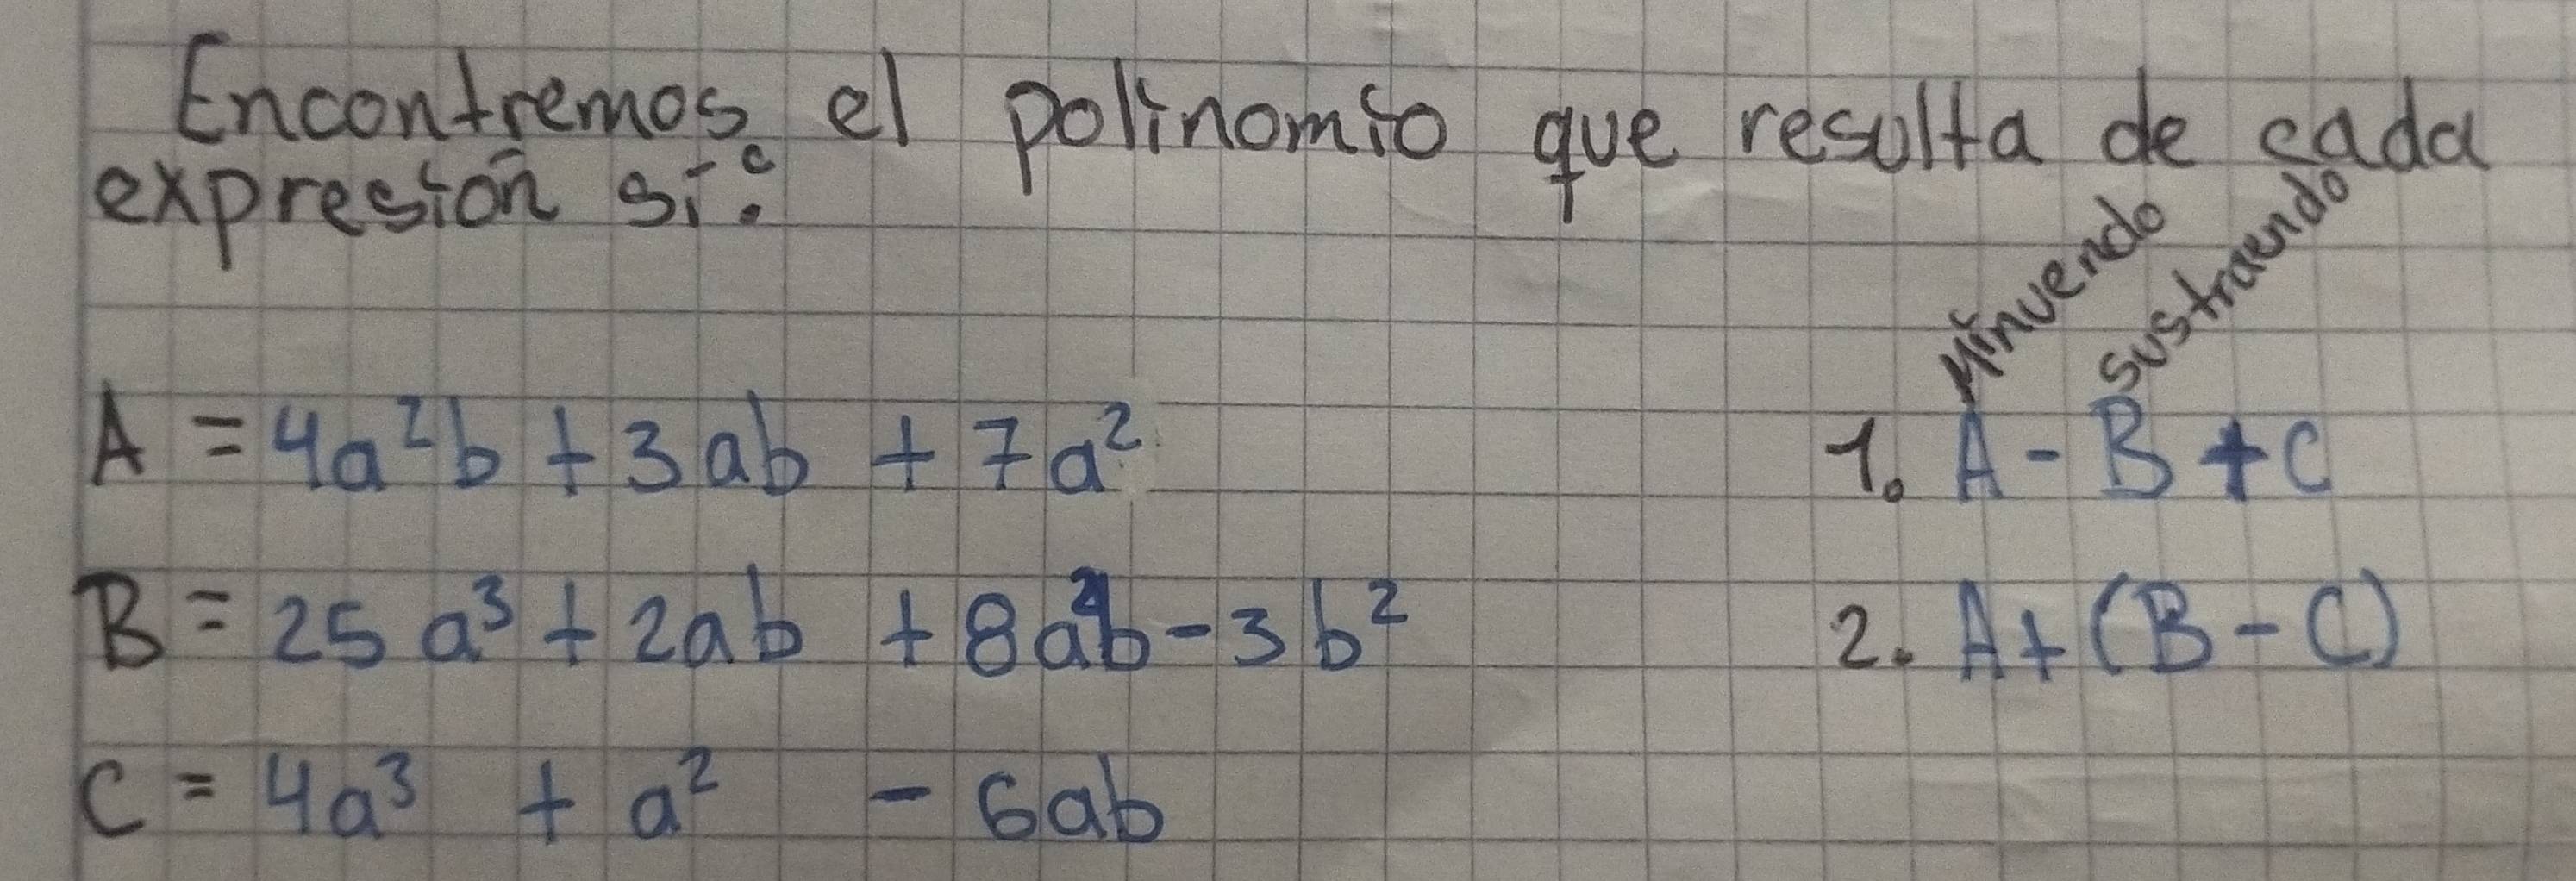 Encontremos el polinomio que resulta de cada
expresión si:
Minuendo
sustraendo
A = 4a²b + 3ab + 7a²
1. A - B + C
B = 25a³ + 2ab + 8a²b - 3b²
2. A + (B - C)
C = 4a³ + a² - 6ab